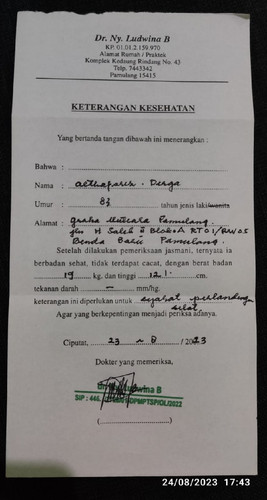 Dr. Ny. Ludwina B
KP. 01.01.2.159.970
Alamat Rumah / Praktek
Komplex Kedaung Rindang No. 43
Telp. 7443342
Pamulang 15415
KETERANGAN KESEHATAN
Yang bertanda tangan dibawah ini menerangkan :
Bahwa :
Nama :
Umur : 8 tahun jenis laki/wanita
Alamat : graha Mutiara Pamulang.
jln H Saleh Blok A RT 01/RW 05
Benda Baru Pamulang.
Setelah dilakukan pemeriksaan jasmani, ternyata ia
berbadan sehat, tidak terdapat cacat, dengan berat badan
19 kg. dan tinggi 121 cm.
tekanan darah : – mm/hg.
keterangan ini diperlukan untuk : syarat pertandingan
silat
Agar yang berkepentingan menjadi periksa adanya.
Ciputat, 23 – 8 / 2023
Dokter yang memeriksa,
Ludwina B
SIP : 446. DPMPTSP/OL/2022
(..............................)
24/08/2023 17:43